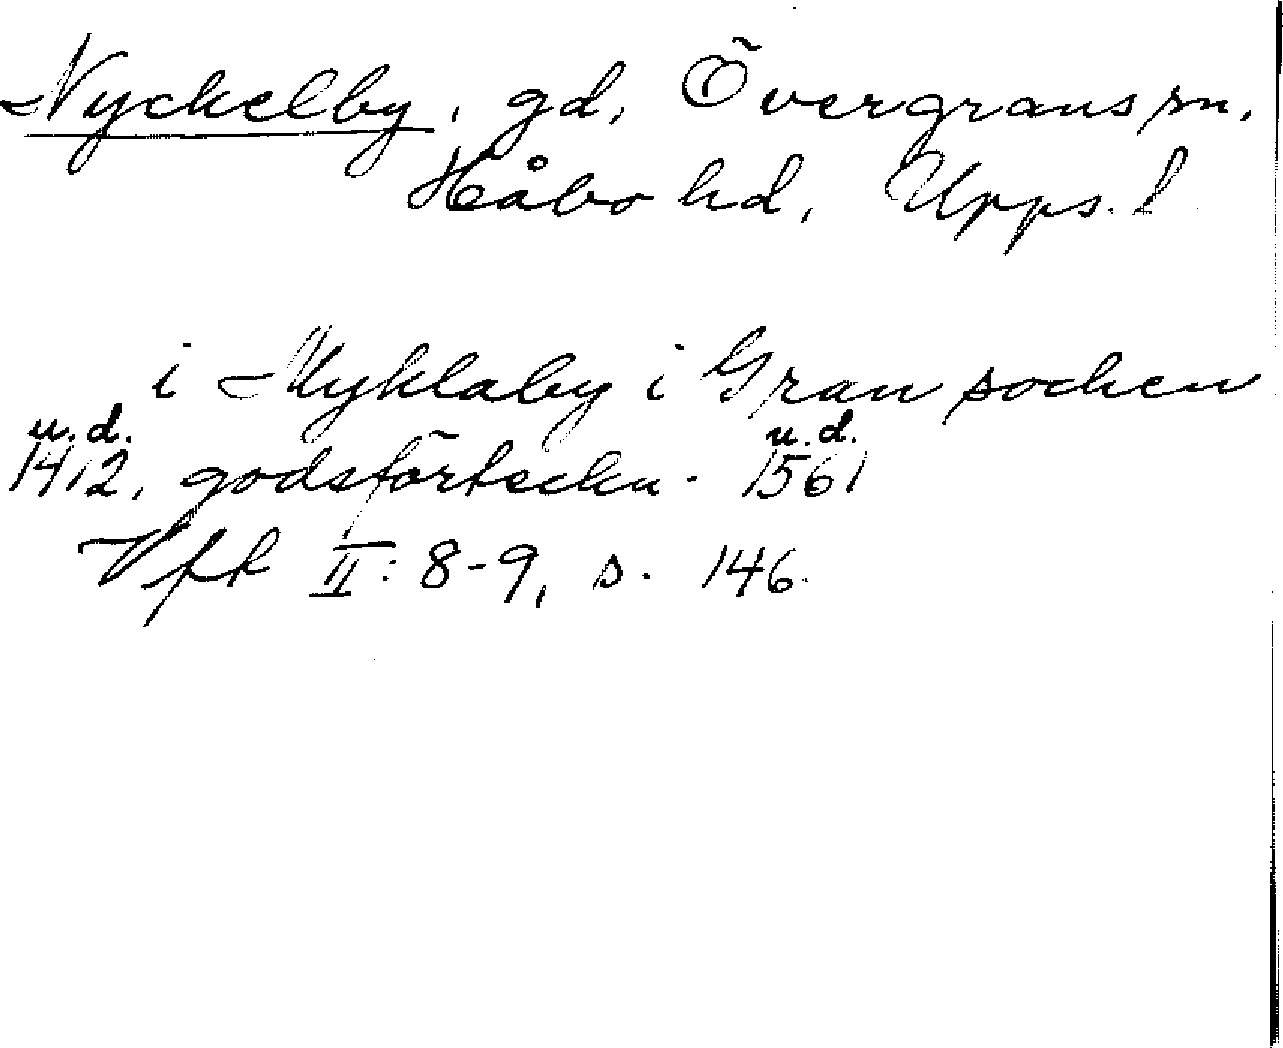 Nyckelby, gd, Övergrans sn,
Håbo hd, Upps. l
i Myklaby i Gran socken
u.d. u.d.
1412, godsförteckn. 1561
Vfk II: 8-9, s. 146.